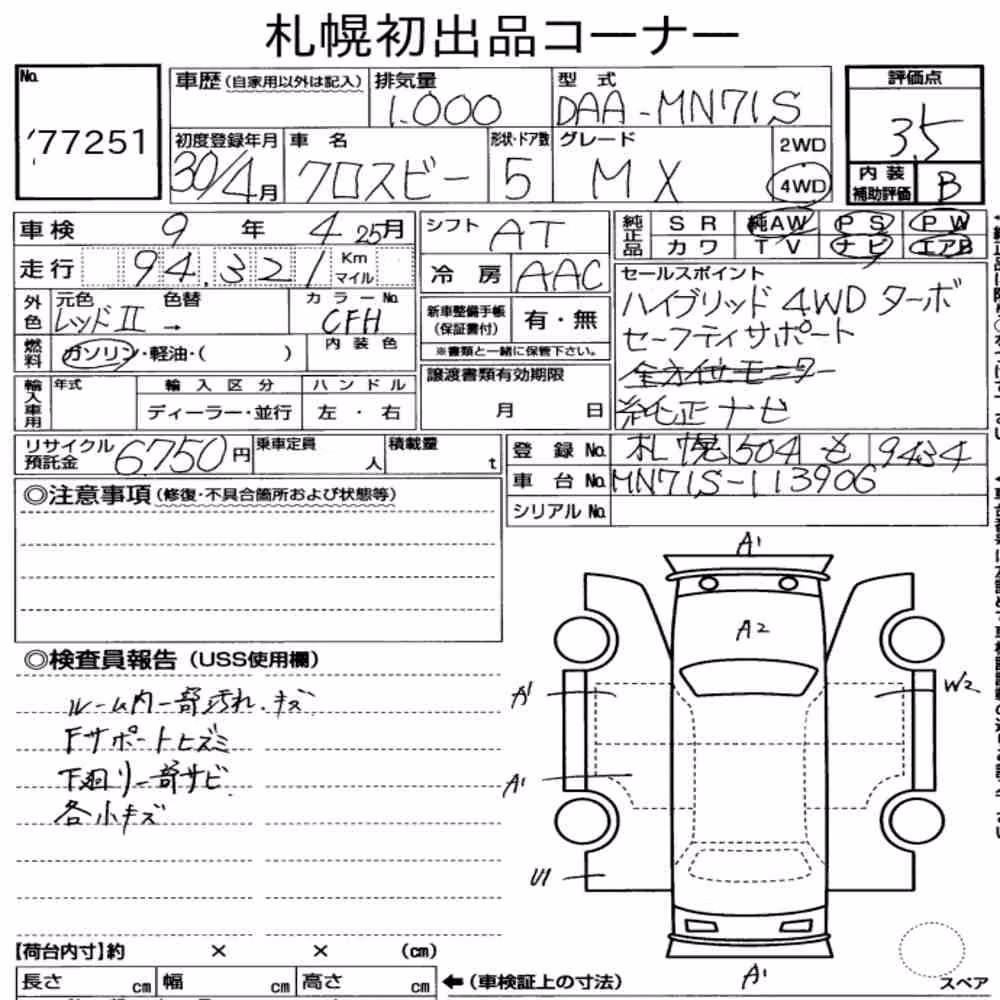 札幌初出品コーナー
No.
77251
車歴 (自家用以外は記入)
排気量
1.000
型 式
DAA-MN71S
評価点
3.5
初度登録年月
30/4月
車 名
クロスビー
形状・ドア数
5
グレード
MX
2WD
4WD
内装補助評価
B
車検 9年 4 25月
走行 94,321 Km マイル
シフト AT
冷房 AAC
純正品
SR 純AW PS PW
カワ TV ナビ エアB
外色
元色 レッドⅡ
色替 →
カラーNo. CFH
燃料 ガソリン・軽油・( )
内装色
新車整備手帳 (保証書付) 有・無
※書類と一緒に保管下さい。
セールスポイント
ハイブリッド 4WD ターボ
セーフティサポート
全方位モニター
純正ナビ
輸入車用
年式
輸入区分
ディーラー・並行
ハンドル
左・右
譲渡書類有効期限
月 日
リサイクル預託金 6750円
乗車定員 人
積載量 t
登録No. 札幌 504 も 9434
車台No. MN71S-113906
シリアルNo.
◎注意事項 (修復・不具合箇所および状態等)
◎検査員報告 (USS使用欄)
ルーム内一部汚れ.キズ
Fサポートヒズミ
下廻り一部サビ
各小キズ
A1
A2
A1
W2
A1
U1
A1
スペア
【荷台内寸】約 × × (cm)
長さ cm 幅 cm 高さ cm
←(車検証上の寸法)